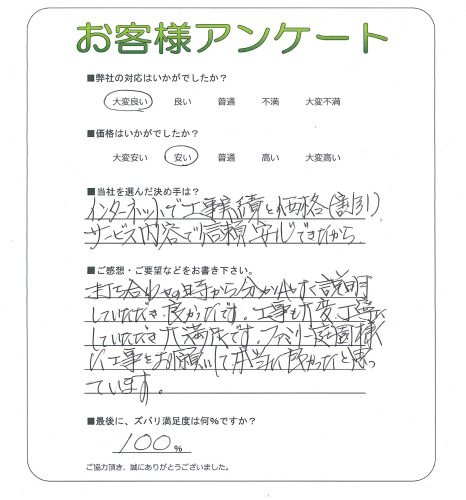 お客様アンケート
■弊社の対応はいかがでしたか?
大変良い 良い 普通 不満 大変不満
■価格はいかがでしたか?
大変安い 安い 普通 高い 大変高い
■当社を選んだ決め手は?
インターネットで工事実績と価格(割引)
サービス内容で信頼、安心できたから
■ご感想・ご要望などをお書き下さい。
打ち合わせの時から分かりやすく説明
していただき良かったです。工事も大変丁寧に
していただき大満足です。ファミリー庭園様
に工事をお願いして本当に良かったと思っ
ています。
■最後に、ズバリ満足度は何%ですか?
100%
ご協力頂き、誠にありがとうございました。